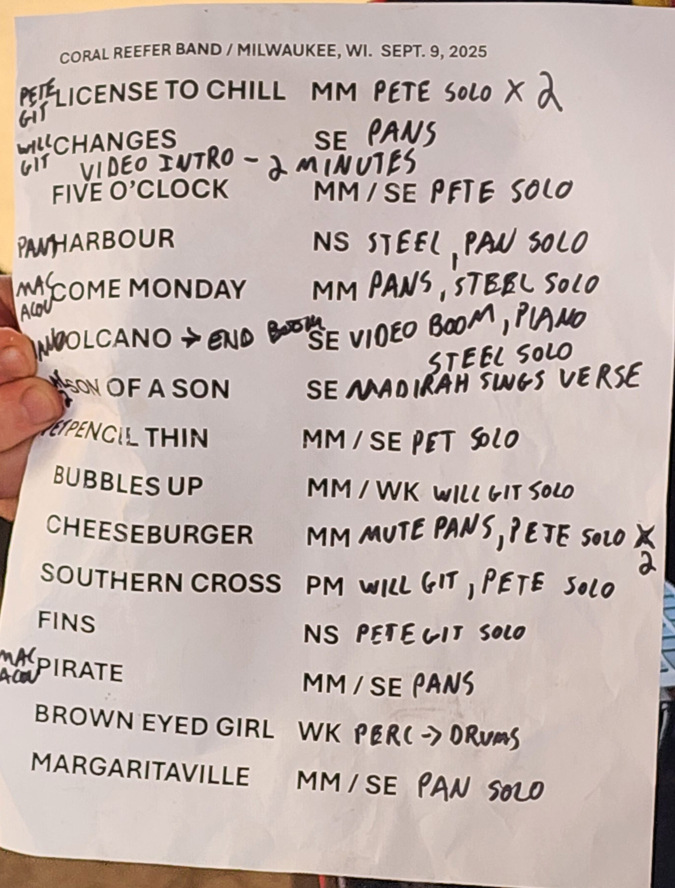 CORAL REEFER BAND / MILWAUKEE, WI. SEPT. 9, 2025
PETE GIT LICENSE TO CHILL MM PETE SOLO X 2
WILL GIT CHANGES SE PANS
VIDEO INTRO - 2 MINUTES
FIVE O'CLOCK MM / SE PETE SOLO
PAN HARBOUR NS STEEL, PAN SOLO
MAC ACOU COME MONDAY MM PANS, STEEL SOLO
VOLCANO → END BOOM SE VIDEO BOOM, PIANO
STEEL SOLO
SON OF A SON SE MADIRAH SINGS VERSE
PENCIL THIN MM / SE PET SOLO
BUBBLES UP MM / WK WILL GIT SOLO
CHEESEBURGER MM MUTE PANS, PETE SOLO X
2
SOUTHERN CROSS PM WILL GIT, PETE SOLO
FINS NS PETE GIT SOLO
MAC ACOU PIRATE MM / SE PANS
BROWN EYED GIRL WK PERC -> DRUMS
MARGARITAVILLE MM / SE PAN SOLO